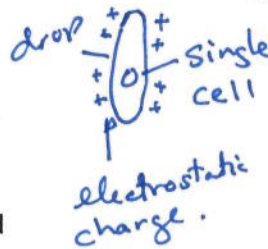 drop
single
cell
electrostatic
charge.